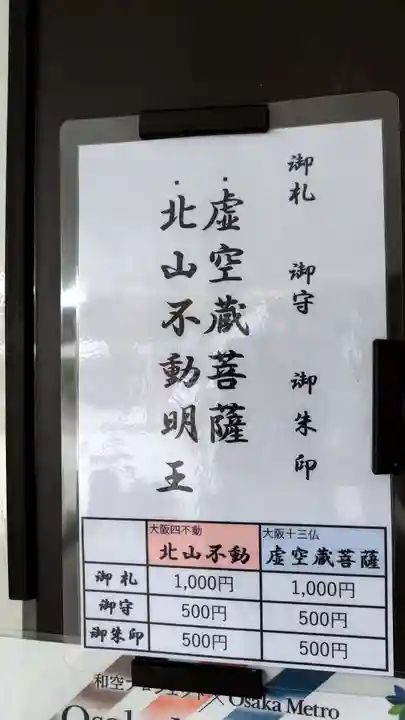 御札 御守 御朱印
・虚空蔵菩薩
・北山不動明王
大阪四不動 大阪十三仏
北山不動 虚空蔵菩薩
御札 1,000円 1,000円
御守 500円 500円
御朱印 500円 500円
× Osaka Metro